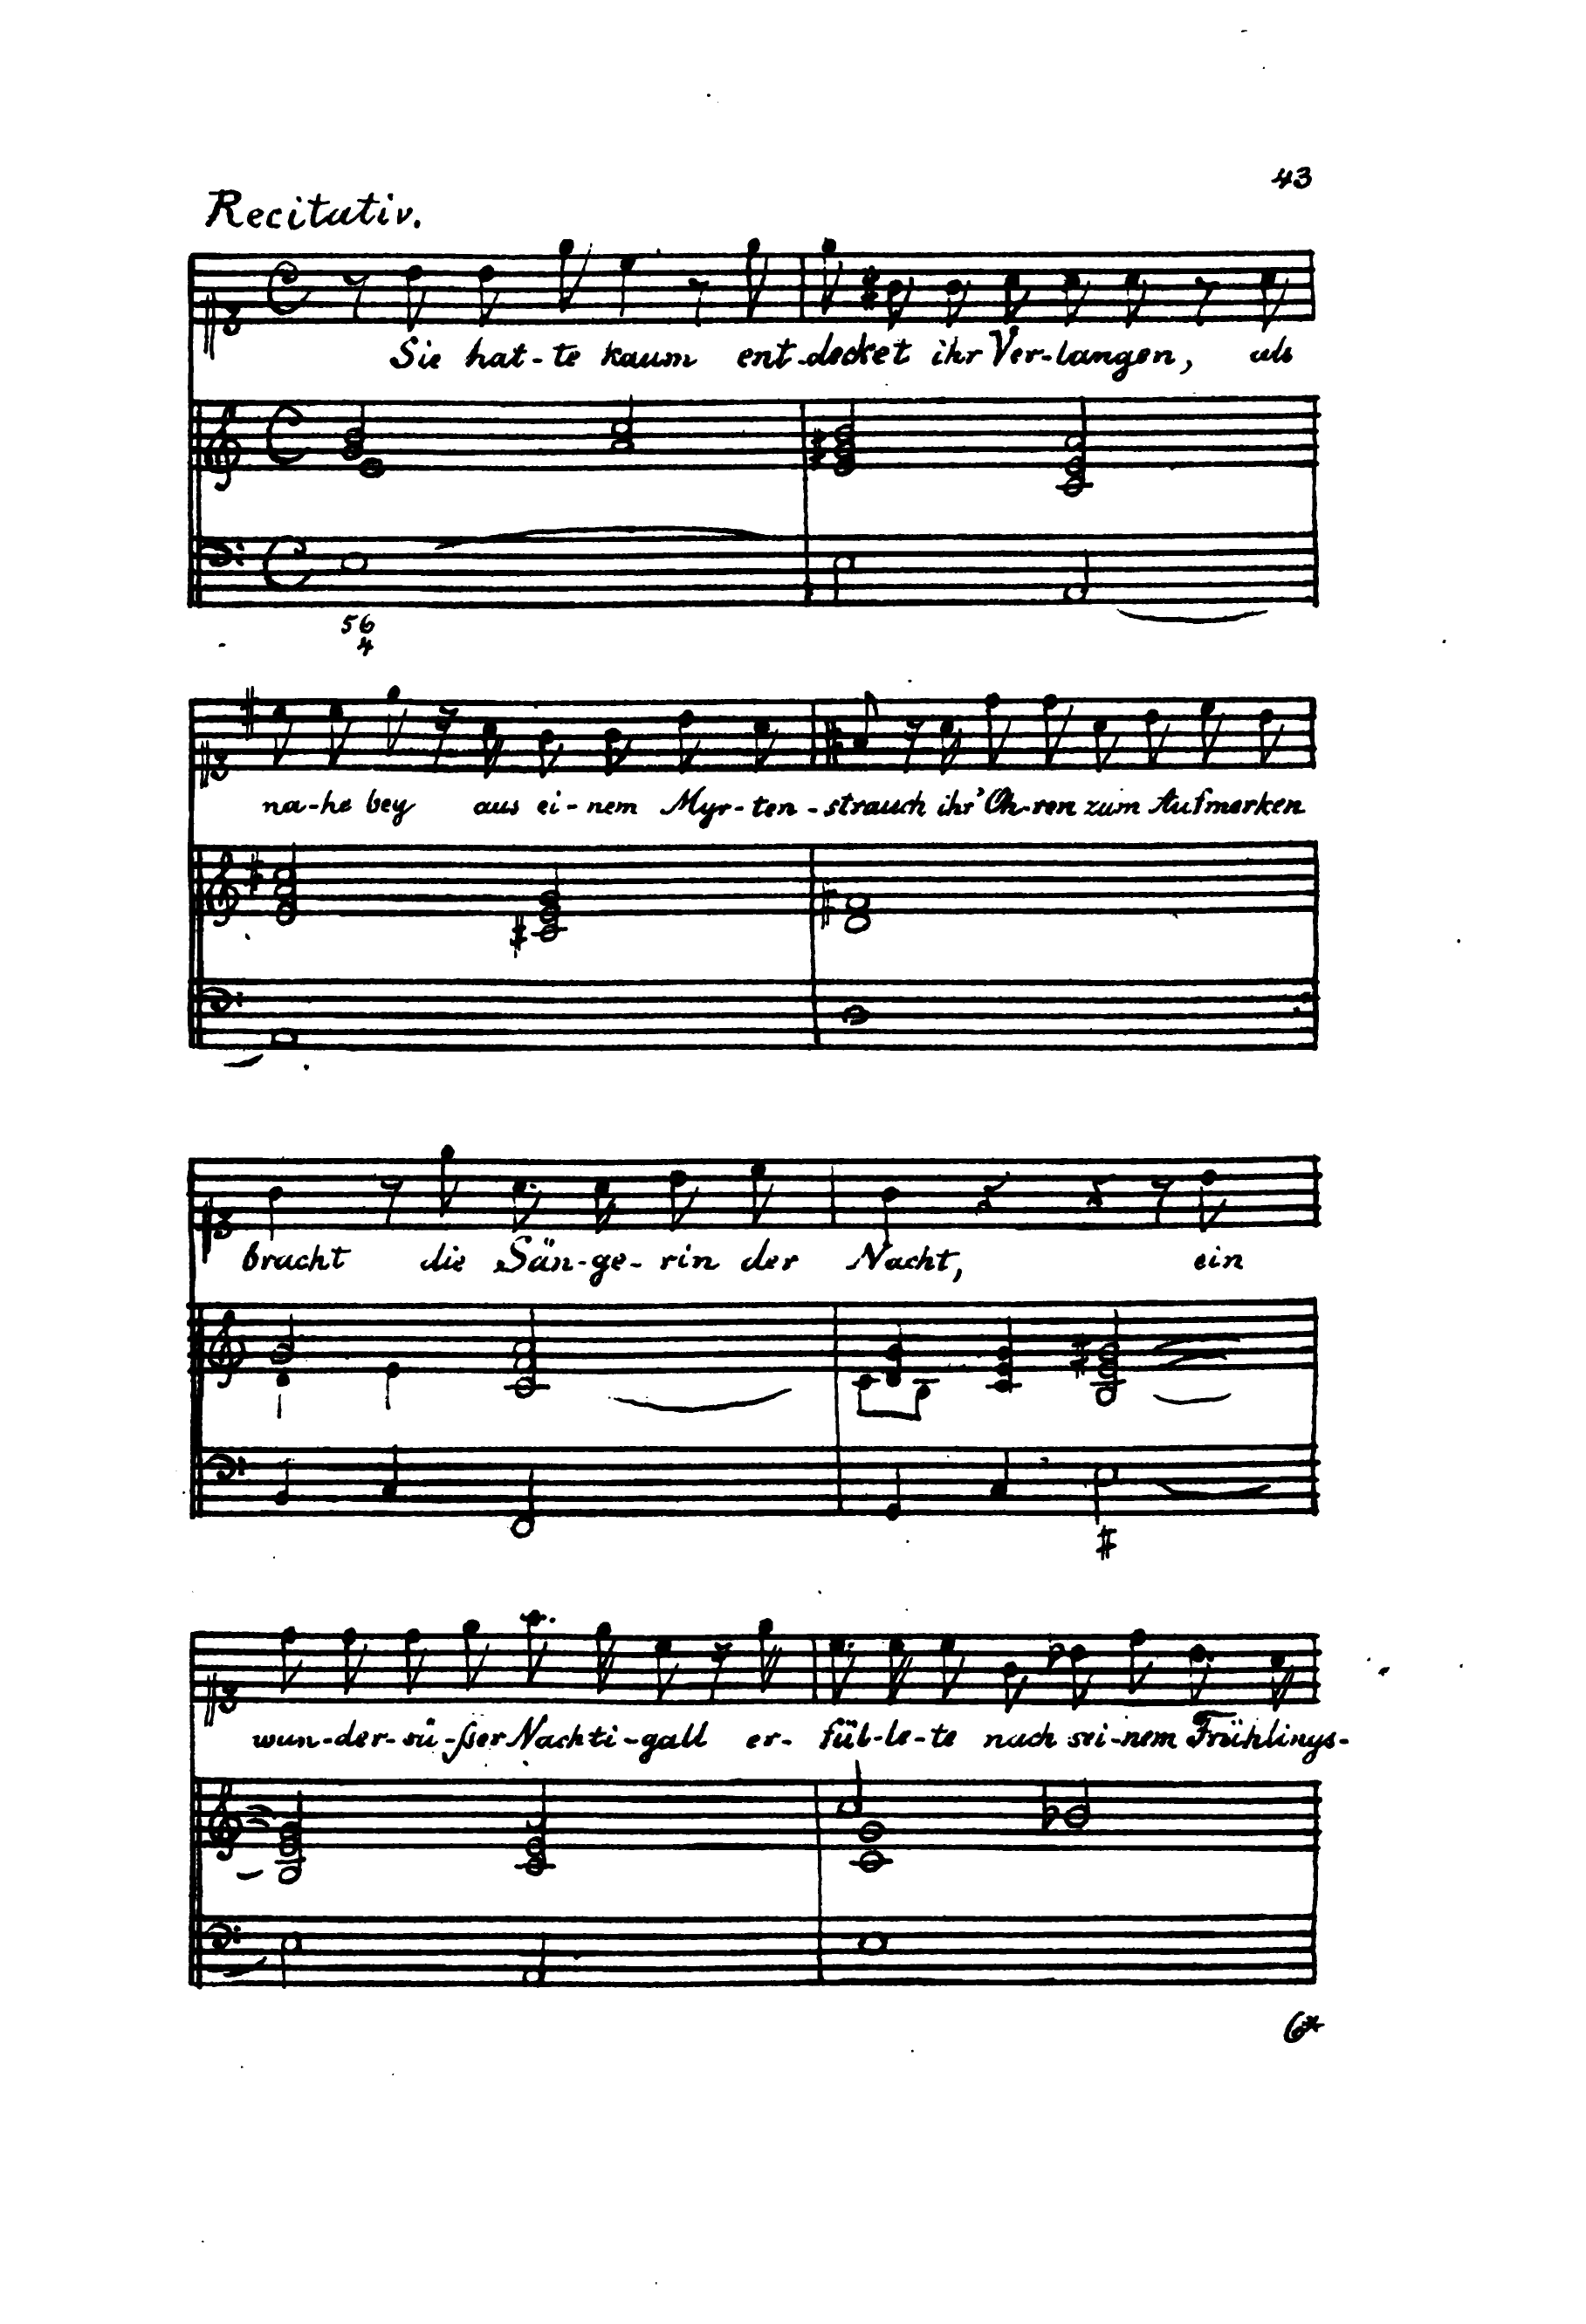 43
Recitativ.
Sie hat-te kaum ent-decket ihr Ver-langen, als
56
4
na-he bey aus ei-nem Myr-ten-strauch ihr' Oh-ren zum Aufmerken
bracht die Sän-ge-rin der Nacht, ein
wun-der-sü-ßer Nachti-gall er-fül-le-te nach sei-nem Frühlings-
6*